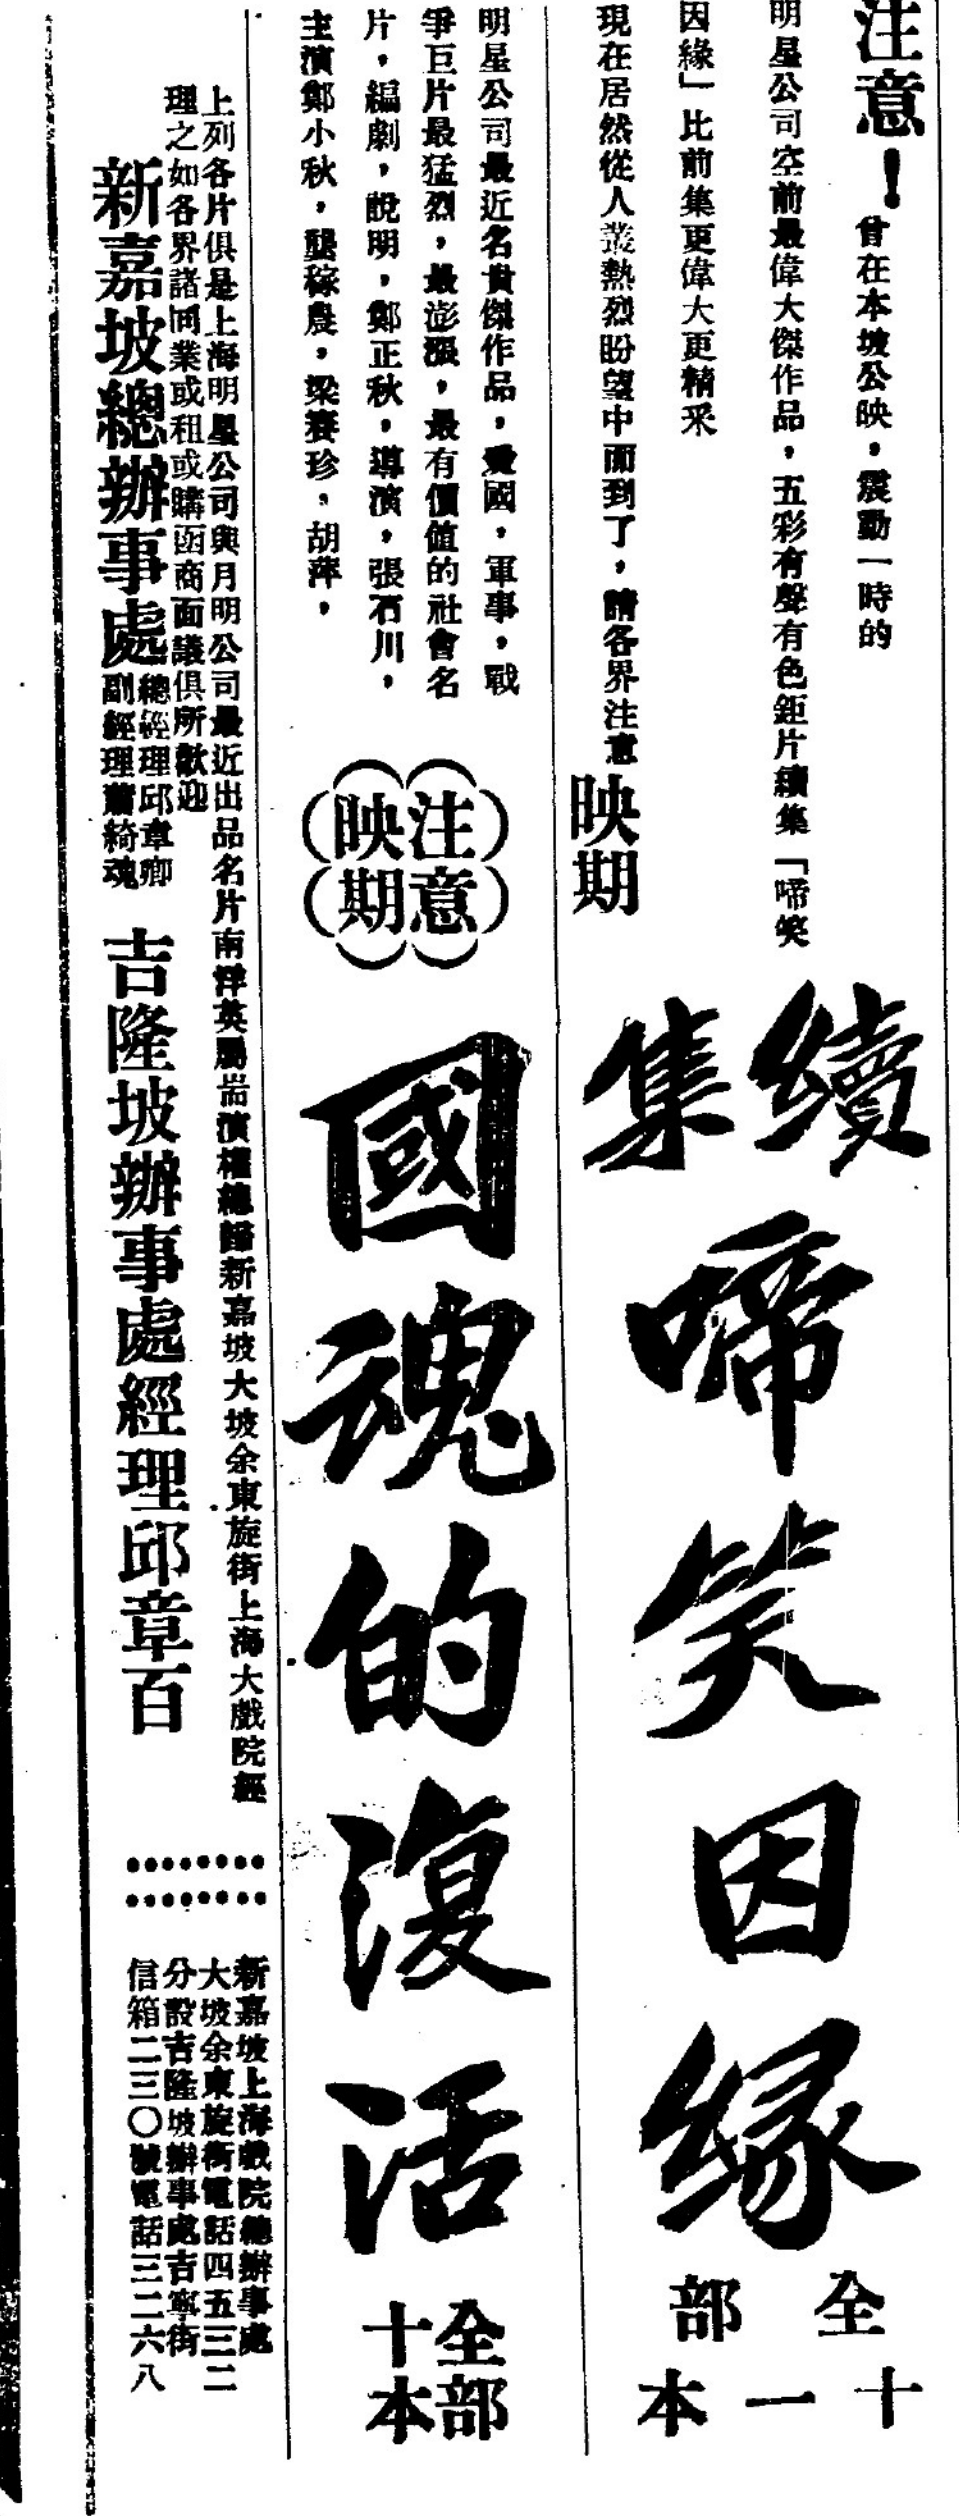 注意！曾在本坡公映，震動一時的
明星公司空前最偉大傑作品，五彩有聲有色鉅片續集「啼笑
因緣」比前集更偉大更精采
現在居然從人叢熱烈盼望中而到了，請各界注意映期
續集
啼笑因緣
全部
十一本
明星公司最近名貴傑作品，愛國，軍事，戰
爭巨片最猛烈，最澎漲，最有價值的社會名
片，編劇，說明，鄭正秋，導演，張石川，
主演鄭小秋，龔稼農，梁賽珍，胡萍，
注意
映期
國魂的復活
全部
十本
上列各片俱是上海明星公司與月明公司最近出品名片南洋英屬開演權總歸新嘉坡大坡余東旋街上海大戲院經
理之如各界諸同業或租或購函商面議俱所歡迎
新嘉坡總辦事處
總經理邱章卿
副經理蕭綺魂
吉隆坡辦事處經理邱章百
新嘉坡上海戲院總辦事處
大坡余東旋街電話四五三二
分設吉隆坡辦事處吉寧街
信箱二三〇號電話三二六八